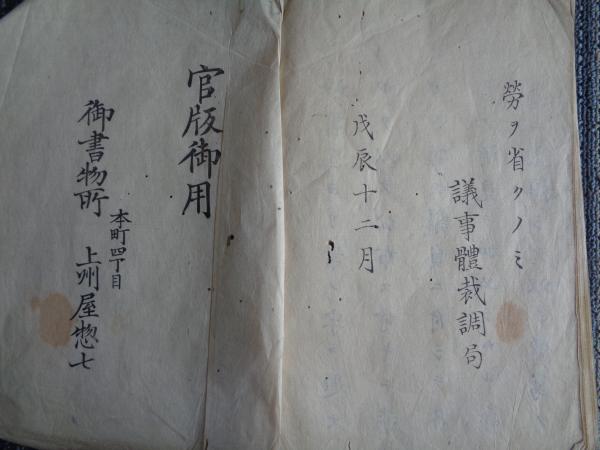 勞ヲ省クノミ
議事體裁調局
戊辰十二月
官版御用
御書物所
本町四丁目
上州屋惣七